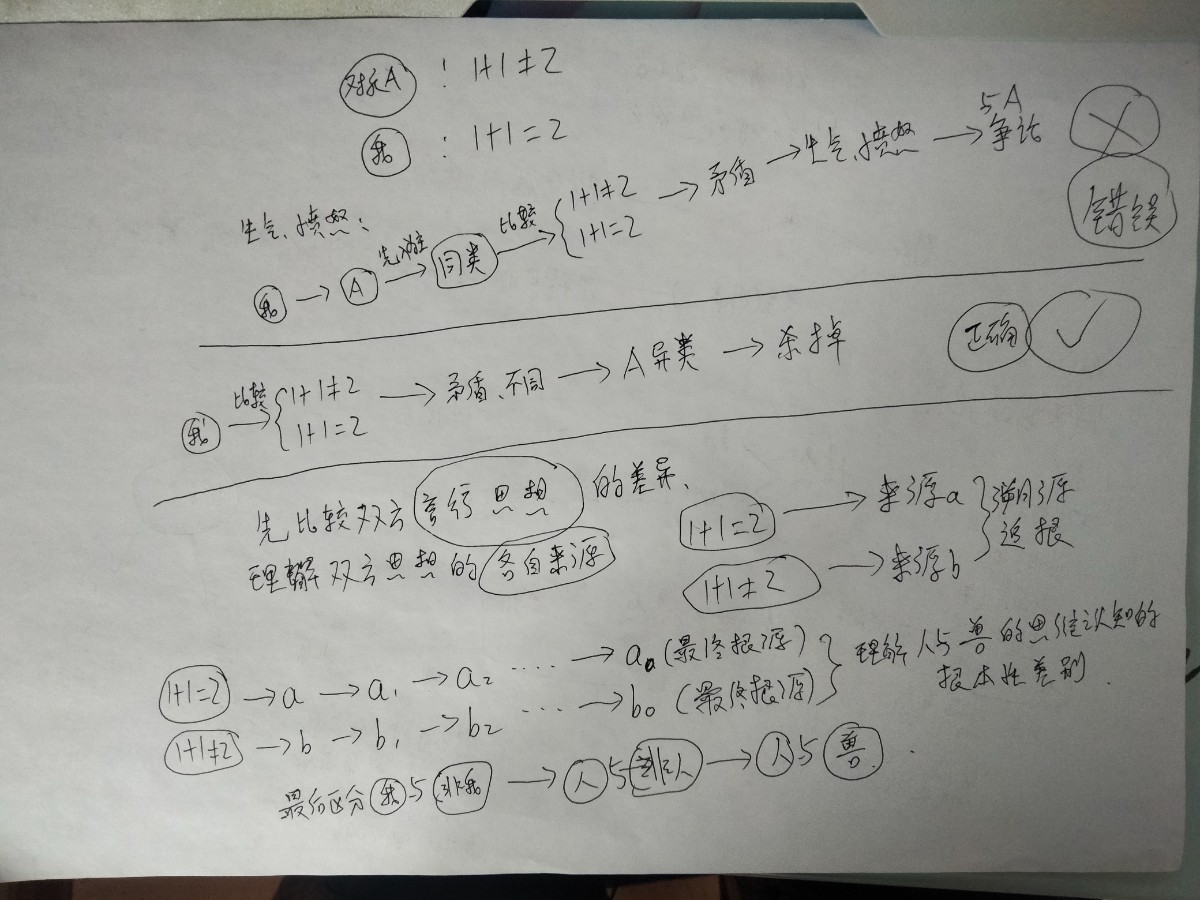 对象A : 1+1≠2
我 : 1+1=2
生气、愤怒:
我 → A 先入为主→ 同类 比较→ { 1+1≠2 1+1=2 → 矛盾 → 生气、愤怒 → 与A争论 ×
错误
我 比较→ { 1+1≠2 1+1=2 → 矛盾、不同 → A异类 → 杀掉 正确 ✓
先比较双方言行思想的差异、
理解双方思想的各自来源
1+1=2 → 来源a
1+1≠2 → 来源b } 溯源追根
1+1=2 → a → a₁ → a₂ ‥‥ → a₀ (最终根源)
1+1≠2 → b → b₁ → b₂ ‥‥ → b₀ (最终根源) } 理解人与兽的思维认知的根本性差别.
最后区分我与非我 → 人与非人 → 人与兽.